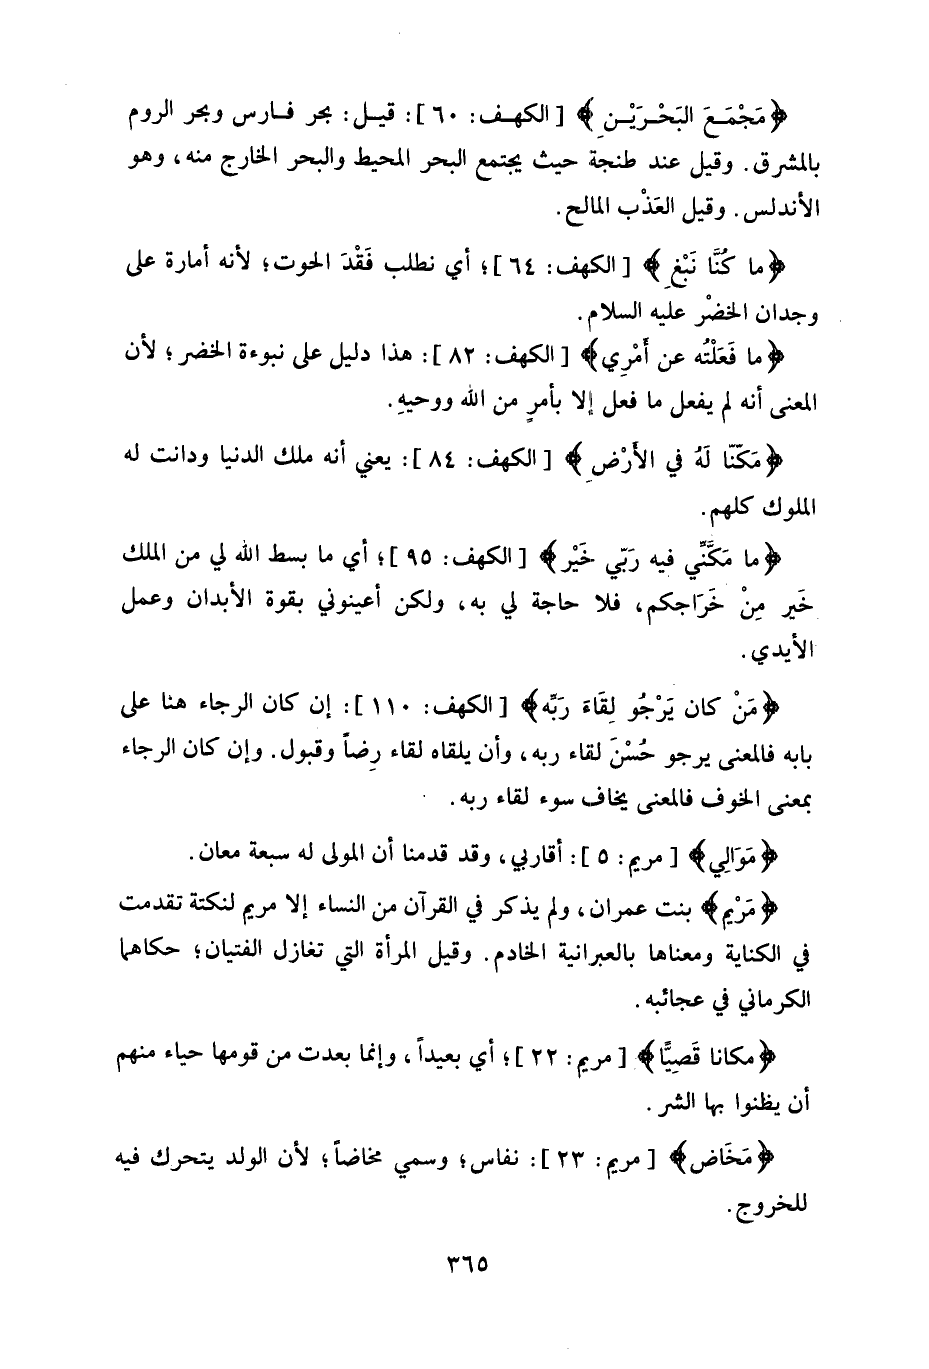 ﴿مَجْمَعَ البَحْرَيْنِ﴾ [الكهف: ٦٠]: قيل: بحر فارس وبحر الروم
بالمشرق. وقيل عند طنجة حيث يجتمع البحر المحيط والبحر الخارج منه، وهو
الأندلس. وقيل العَذْب المالح.
﴿ما كُنَّا نَبْغِ﴾ [الكهف: ٦٤]؛ أي نطلب فَقْدَ الحوت؛ لأنه أمارة على
وجدان الخضْر عليه السلام.
﴿ما فَعَلْتُه عن أَمْرِي﴾ [الكهف: ٨٢]: هذا دليل على نبوءة الخضر؛ لأن
المعنى أنه لم يفعل ما فعل إلا بأمرٍ من الله ووحيهِ.
﴿مَكّنّا لَهُ في الأَرْضِ﴾ [الكهف: ٨٤]: يعني أنه ملك الدنيا ودانت له
الملوك كلهم.
﴿ما مَكَّنِّي فيه رَبّي خَيْر﴾ [الكهف: ٩٥]؛ أي ما بسط الله لي من الملك
خَير مِنْ خَرَاجكم، فلا حاجة لي به، ولكن أعينوني بقوة الأبدان وعمل
الأيدي.
﴿مَنْ كان يَرْجُو لِقَاءَ رَبِّه﴾ [الكهف: ١١٠]: إن كان الرجاء هنا على
بابه فالمعنى يرجو حُسْنَ لقاء ربه، وأن يلقاه لقاء رِضاً وقبول. وإن كان الرجاء
بمعنى الخوف فالمعنى يخاف سوء لقاء ربه.
﴿مَوَالِي﴾ [مريم: ٥]: أقاربي، وقد قدمنا أن المولى له سبعة معان.
﴿مَرْيم﴾ بنت عمران، ولم يذكر في القرآن من النساء إلا مريم لنكتة تقدمت
في الكناية ومعناها بالعبرانية الخادم. وقيل المرأة التي تغازل الفتيان؛ حكاهما
الكرماني في عجائبه.
﴿مكانا قَصِيًّا﴾ [مريم: ٢٢]؛ أي بعيداً، وإنما بعدت من قومها حياء منهم
أن يظنوا بها الشر.
﴿مَخَاض﴾ [مريم: ٢٣]: نفاس؛ وسمي مخاضاً؛ لأن الولد يتحرك فيه
للخروج.
٣٦٥